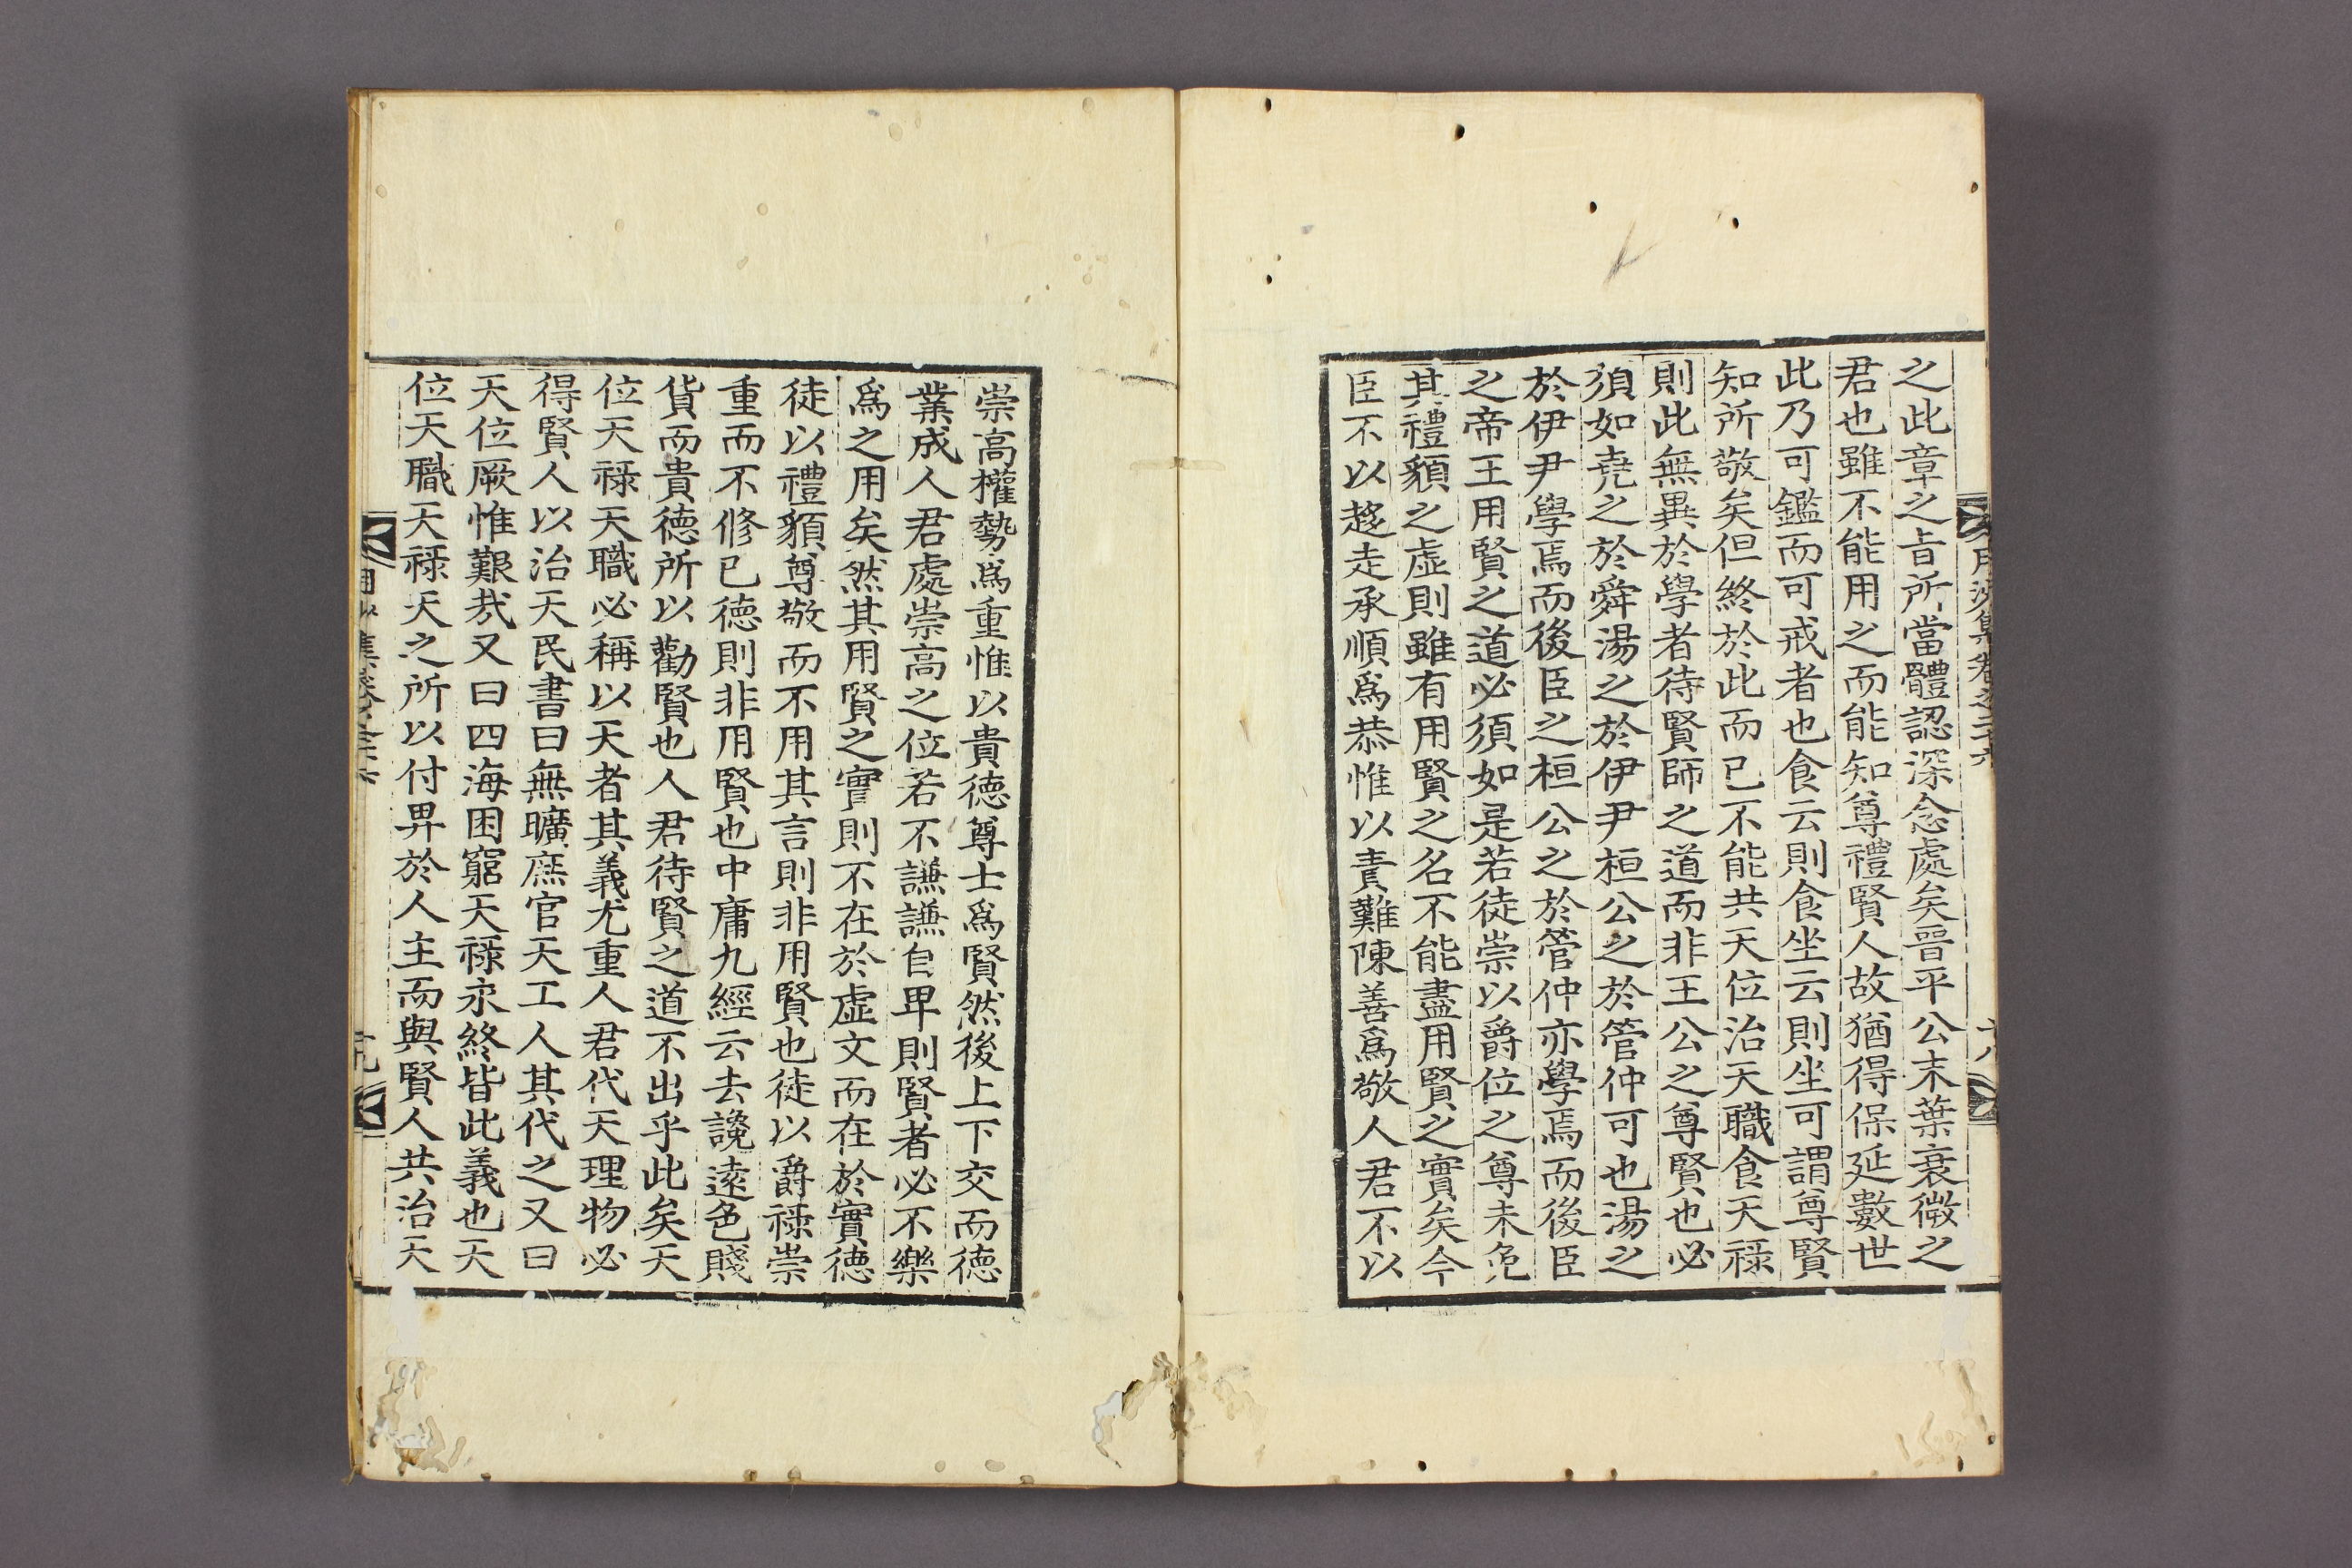 之此章之旨所當體認深念處矣晉平公末葉衰微之
君也雖不能用之而能知尊禮賢人故猶得保延數世
此乃可鑑而可戒者也食云則食坐云則坐可謂尊賢
知所敬矣但終於此而已不能共天位治天職食天祿
則此無異於學者待賢師之道而非王公之尊賢也必
須如堯之於舜湯之於伊尹桓公之於管仲可也湯之
於伊尹學焉而後臣之桓公之於管仲亦學焉而後臣
之帝王用賢之道必須如是若徒崇以爵位之尊未免
其禮貌之虛則雖有用賢之名不能盡用賢之實矣今
臣不以趍走承順爲恭惟以責難陳善爲敬人君不以
崇高權勢爲重惟以貴德尊士爲賢然後上下交而德
業成人君處崇高之位若不謙謙自卑則賢者必不樂
爲之用矣然其用賢之實則不在於虛文而在於實德
徒以禮貌尊敬而不用其言則非用賢也徒以爵祿崇
重而不修己德則非用賢也中庸九經云去讒遠色賤
貨而貴德所以勸賢也人君待賢之道不出乎此矣天
位天祿天職必稱以天者其義尤重人君代天理物必
得賢人以治天民書曰無曠庶官天工人其代之又曰
天位厥惟艱㢤又曰四海困窮天祿永終皆此義也天
位天職天祿天之所以付畀於人主而與賢人共治天